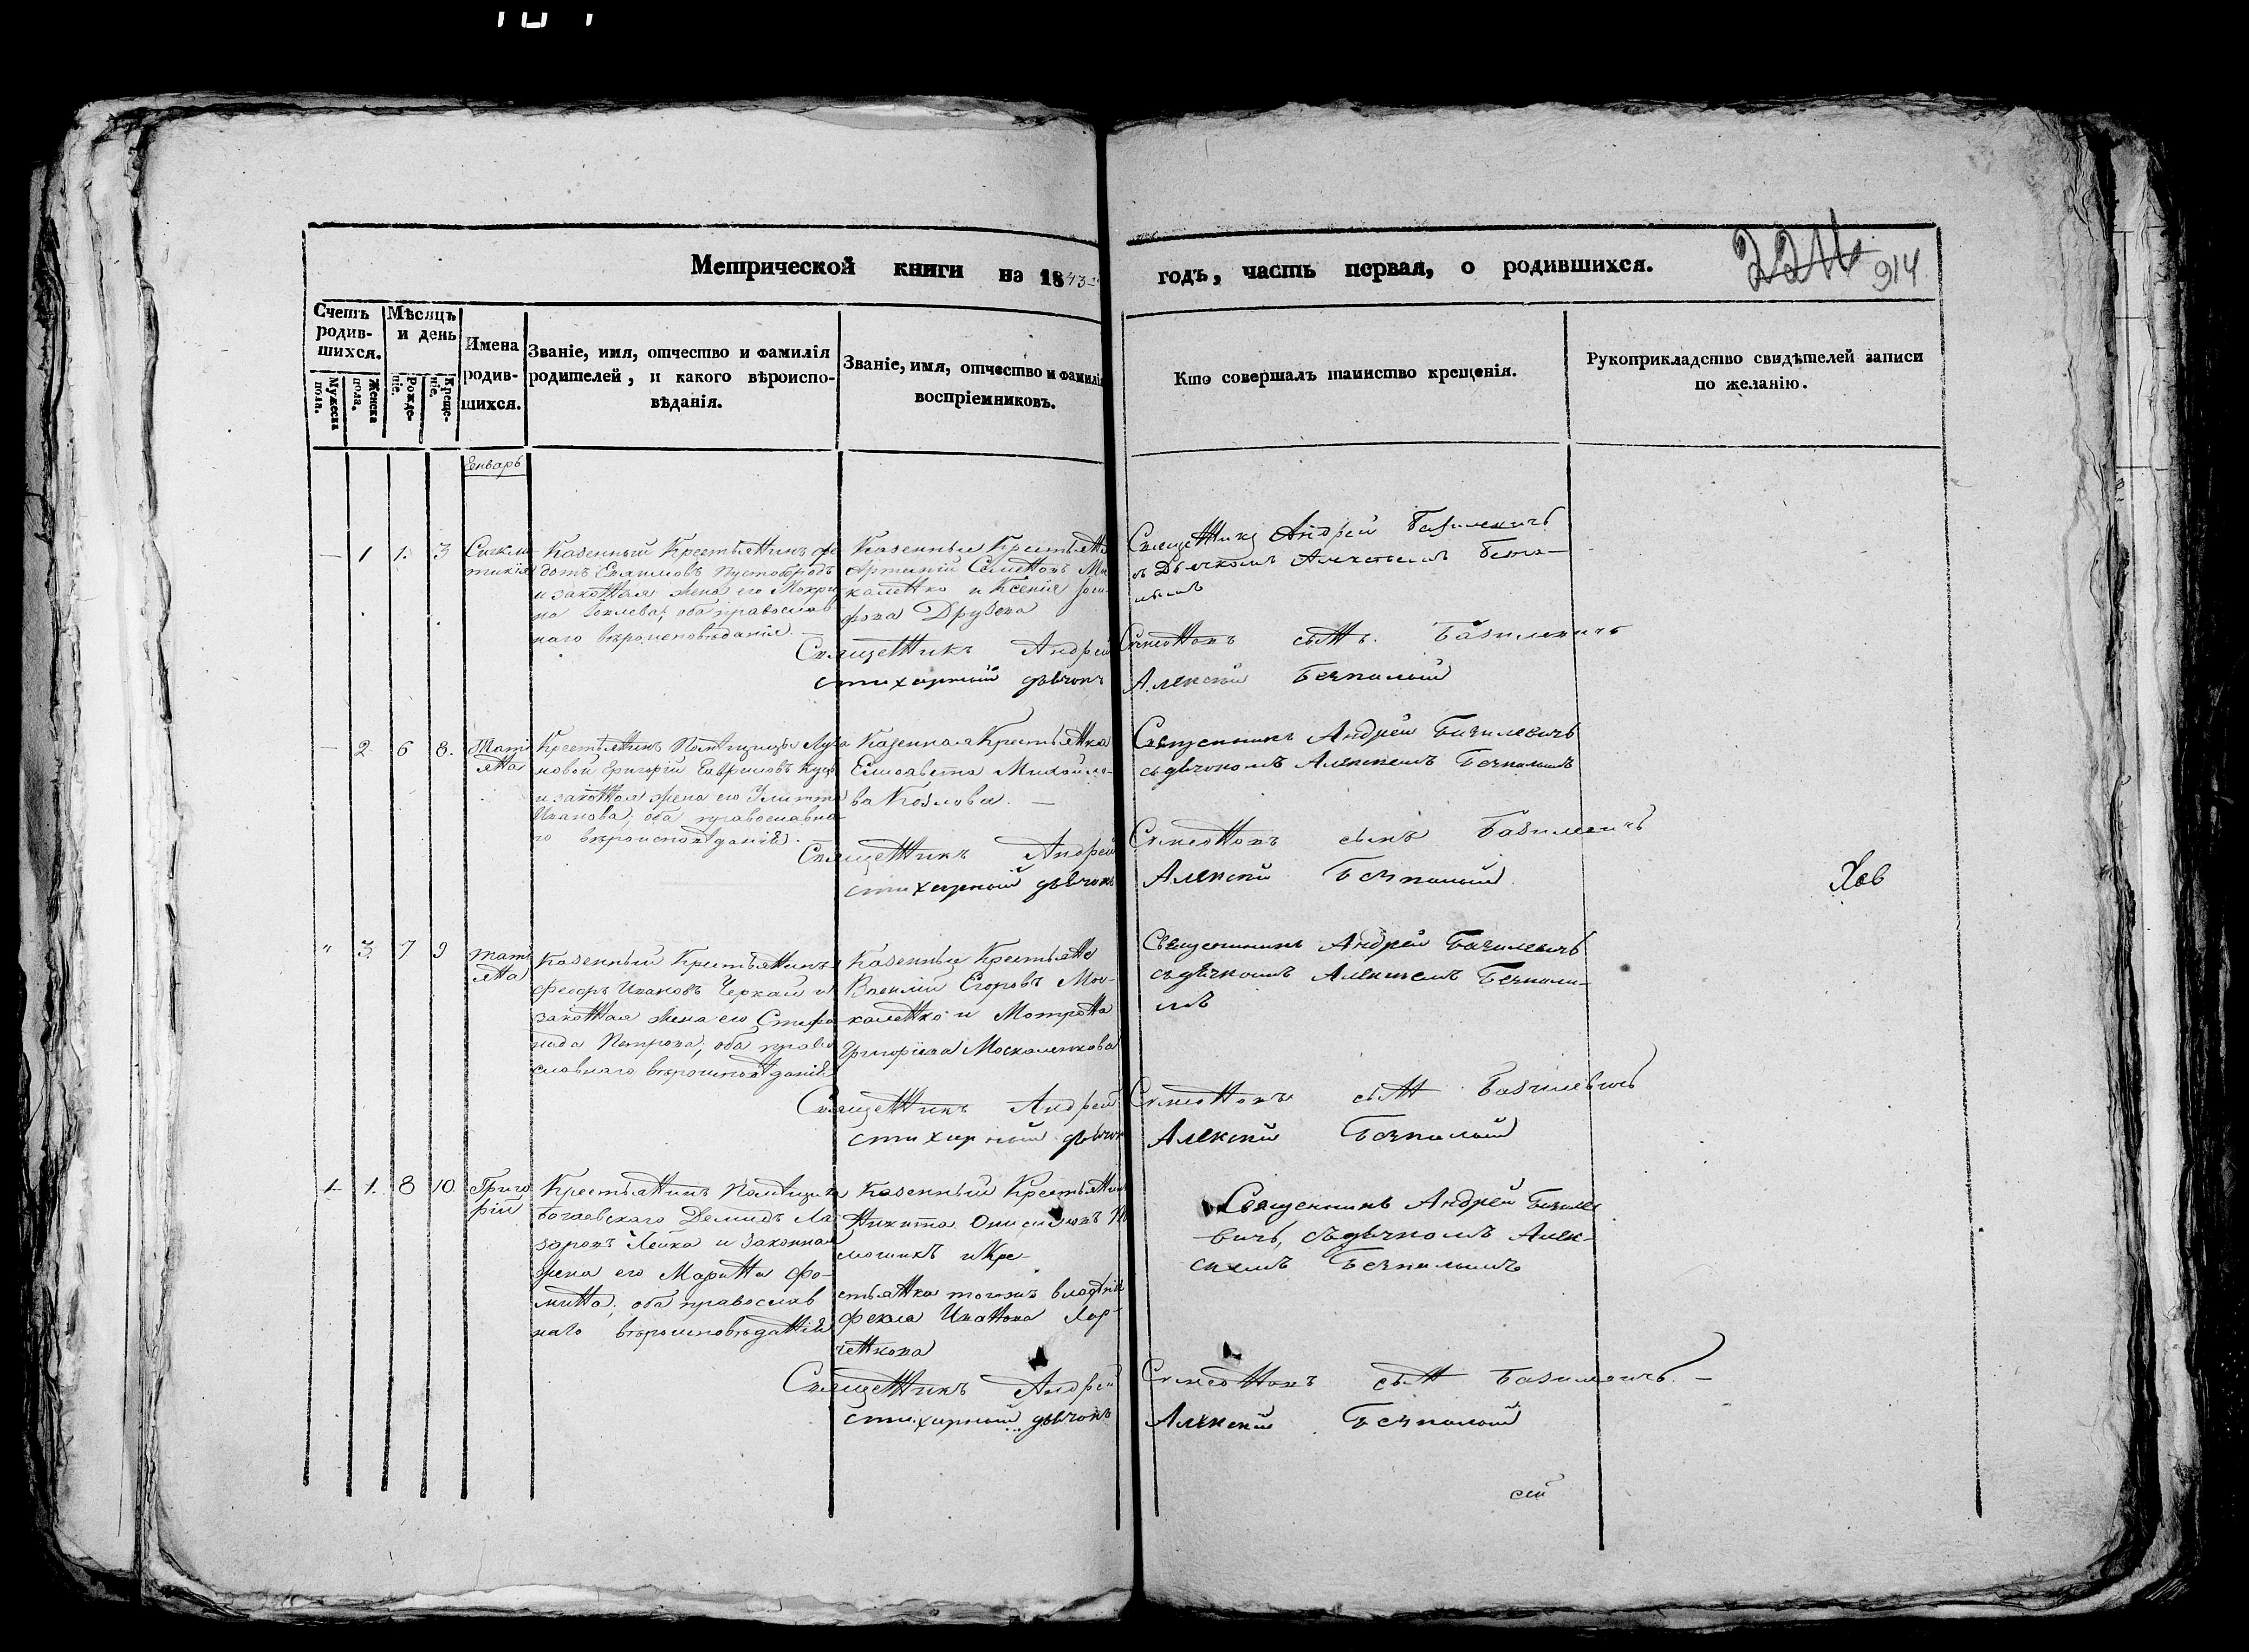 Метрической книги на 1843 годъ, часть первая, о родившихся.
914
Счетъ родив-
шихся.
Мужеска пола.
Женска пола.
Мѣсяцъ и день
Рожде-
ніе.
Креще-
ніе.
Имена
родив-
шихся.
Званіе, имя, отчество и фамилія
родителей, и какого вѣроиспо-
вѣданія.
Званіе, имя, отчество и фамилія
воспріемниковъ.
Кто совершалъ таинство крещенія.
Рукоприкладство свидѣтелей записи
по желанію.
Генварь
— 1 1. 3
Казенный Крестьянинъ Фе
дотъ
и законная жена его Мокри
на оба православ
наго вѣроисповѣданія.
Казенные Крестьяне
Артемій Семеновъ
и Ксенія
Священникъ Андрей Базилевичъ
съ Дьячкомъ
Священникъ Андрей Симеоновъ сынъ Базилевичъ
стихарный дьячокъ Алексій Безпалый
— 2 6 8.
Тати
яна
Крестьянинъ Помѣщицы
Григорій Гавриловъ
и законная жена его Улита
Иванова; оба православна
го вѣроисповѣданія.
Казенная Крестьянка
Елисавета Михайло-
ва Козлова. —
Священникъ Андрей Базилевичъ
съ дьячкомъ Алексіемъ Безпалымъ
Священникъ Андрей Симеоновъ сынъ Базилевичъ
стихарный дьячокъ Алексій Безпалый
" 3 7 9
Тати
яна
Казенный Крестьянинъ
Феодоръ Ивановъ Черкай и
законная жена его Стефа
нида Петрова; оба право
славнаго вѣроисповѣданія
Казенные Крестьяне
Василій Егоровъ Мос-
каленко и Мотрона
Григоріева Москаленкова
Священникъ Андрей Базилевичъ
съ дьячкомъ Алексіемъ Безпалы-
мъ
Священникъ Андрей Симеоновъ сынъ Базилевичъ
стихарный дьячокъ Алексій Безпалый
1. 1. 8 10.
Григо
рій
Крестьянинъ Помѣщика
Богаевскаго Демидъ Ла
заровъ Лейка и законная
жена его Марина Фо-
мина; оба православ
наго вѣроисповѣданія
Казенный Крестьянинъ
Никита
и Кре-
стьянка тогожъ владѣнія
Фекла Иванова Хар-
ченкова
Священникъ Андрей Базиле
вичъ, съ дьячкомъ Алек-
сіемъ Безпалымъ
Священникъ Андрей Симеоновъ сынъ Базилевичъ. —
стихарный дьячокъ Алексій Безпалый